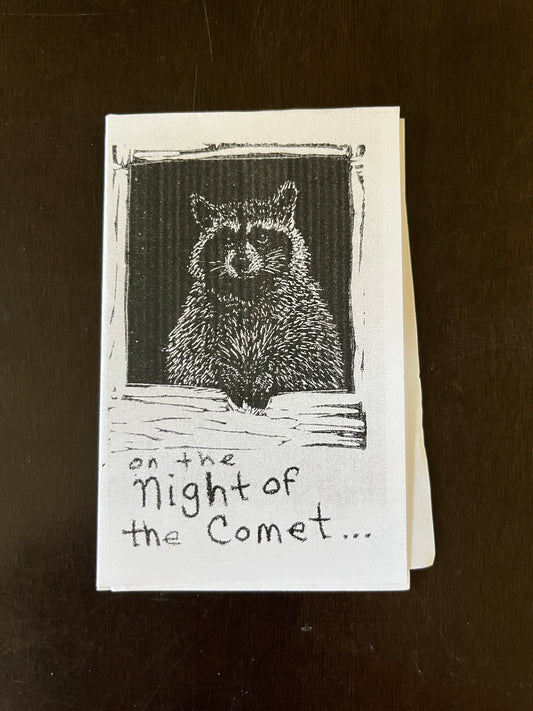 on the
Night of
the Comet...